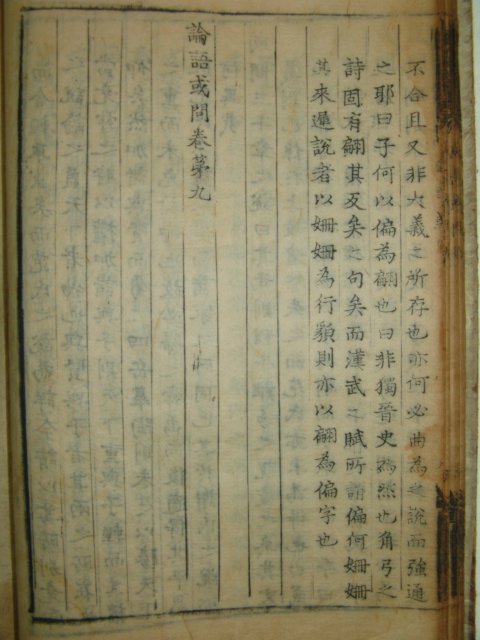 不合且又非大義之所存也亦何必曲為之說而強通
之耶曰子何以偏為翩也曰非獨晉史為然也角弓之
詩固有翩其反矣之句矣而漢武之賦所謂偏何姍姍
其來遲說者以姍姍為行貌則亦以翩為偏字也
論語或問卷第九